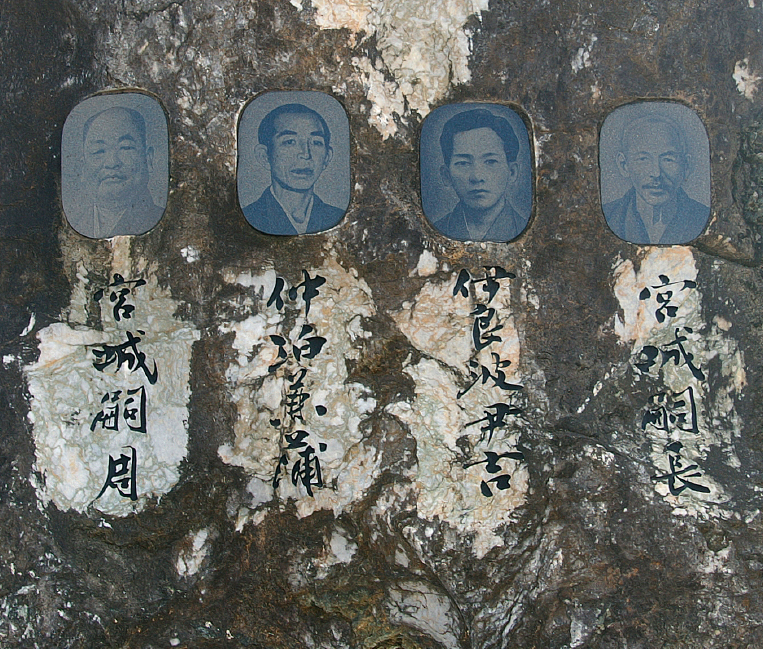 宮城嗣長
伊良波尹吉
仲泊兼蒲
宮城嗣周